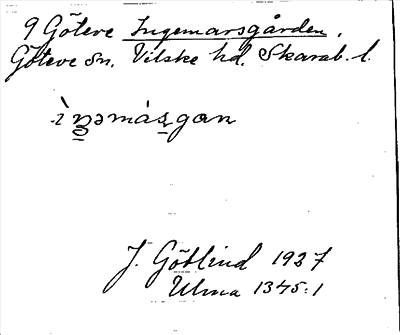 9 Göteve Ingemarsgården.
Göteve sn. Vilske hd. Skarab. l.
J. Götlind 1927
Ulma 1345:1